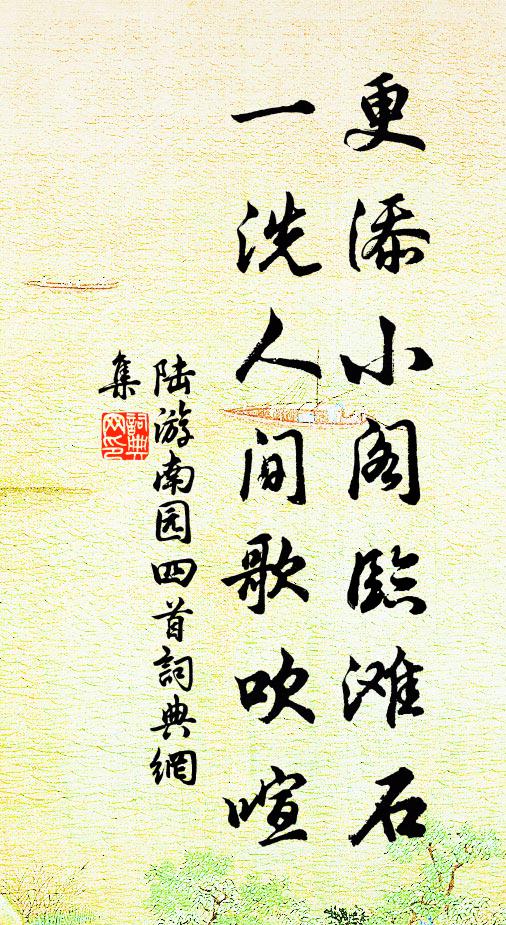 更添小阁臨滩石
一洗人间歌吹喧
陆游南园四首詞典網
集
詞典
网印